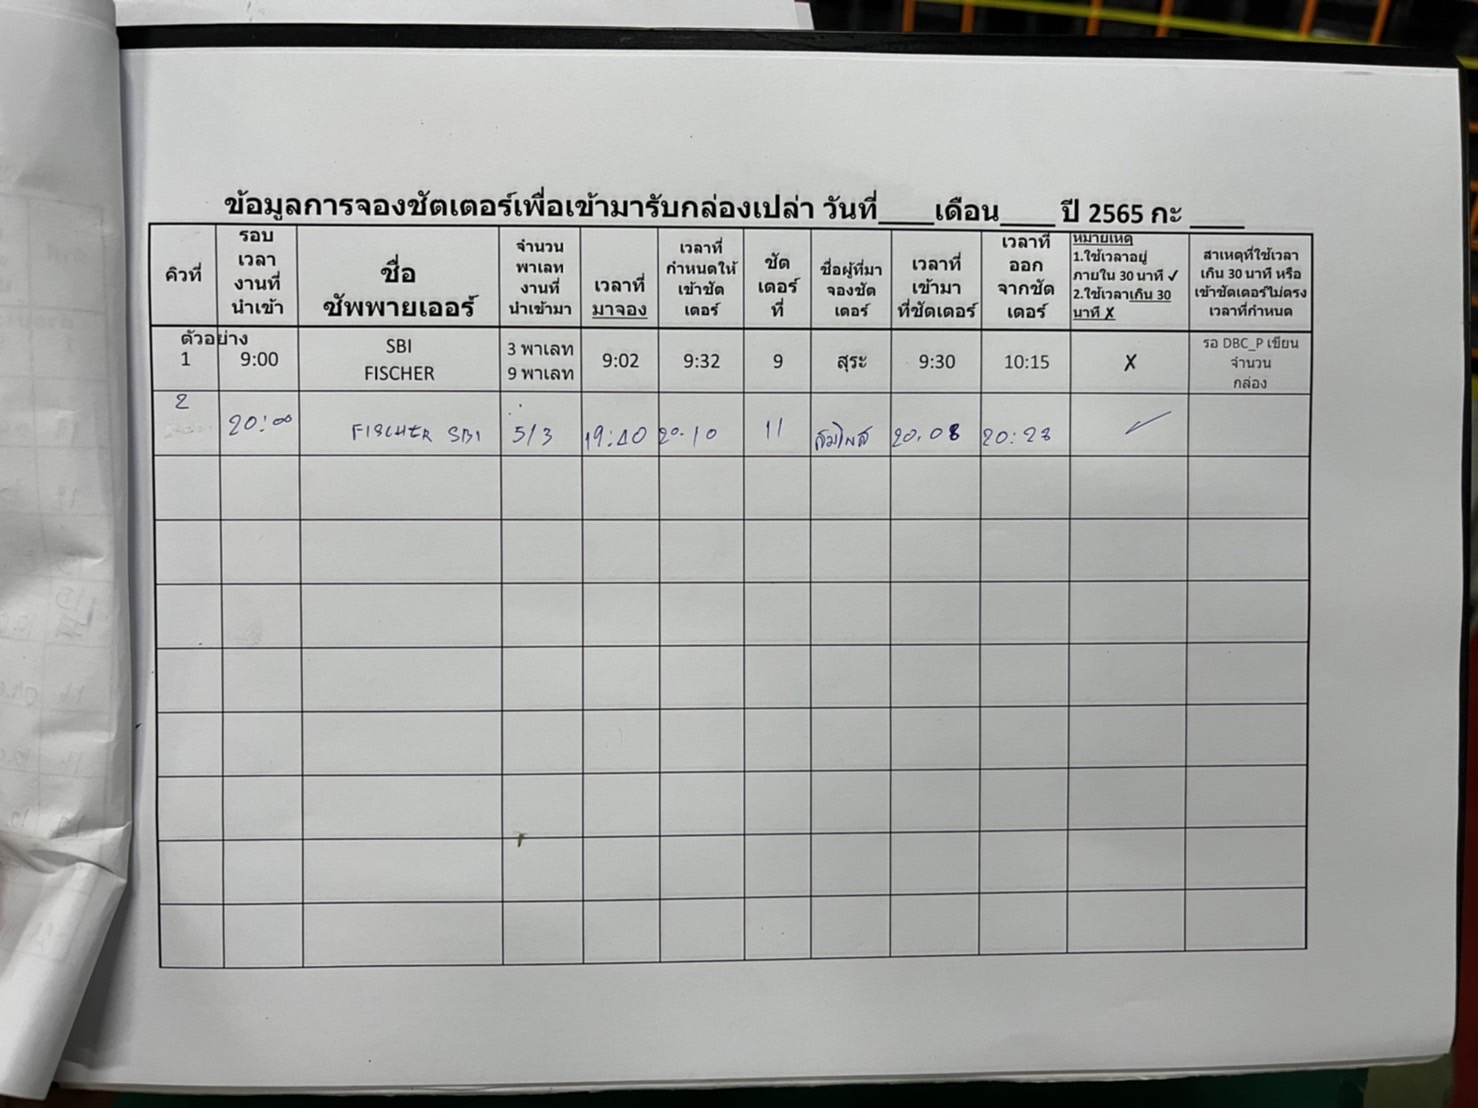 ข้อมูลการจองชัตเตอร์เพื่อเข้ามารับกล่องเปล่า วันที่____เดือน____ ปี 2565 กะ ____
คิวที่
รอบ
เวลา
งานที่
นำเข้า
ชื่อ
ซัพพายเออร์
จำนวน
พาเลท
งานที่
นำเข้ามา
เวลาที่
มาจอง
เวลาที่
กำหนดให้
เข้าชัต
เตอร์
ชัต
เตอร์
ที่
ชื่อผู้ที่มา
จองชัต
เตอร์
เวลาที่
เข้ามา
ที่ชัตเตอร์
เวลาที่
ออก
จากชัต
เตอร์
หมายเหตุ
1.ใช้เวลาอยู่
ภายใน 30 นาที ✓
2.ใช้เวลาเกิน 30
นาที X
สาเหตุที่ใช้เวลา
เกิน 30 นาที หรือ
เข้าชัตเตอร์ไม่ตรง
เวลาที่กำหนด
ตัวอย่าง
1
9:00
SBI
FISCHER
3 พาเลท
9 พาเลท
9:02
9:32
9
สุระ
9:30
10:15
X
รอ DBC_P เขียน
จำนวน
กล่อง
2
20:00 FISCHER SBI 5/3 19:40 20.10 11 สมโภส 20.08 20:28 ✓